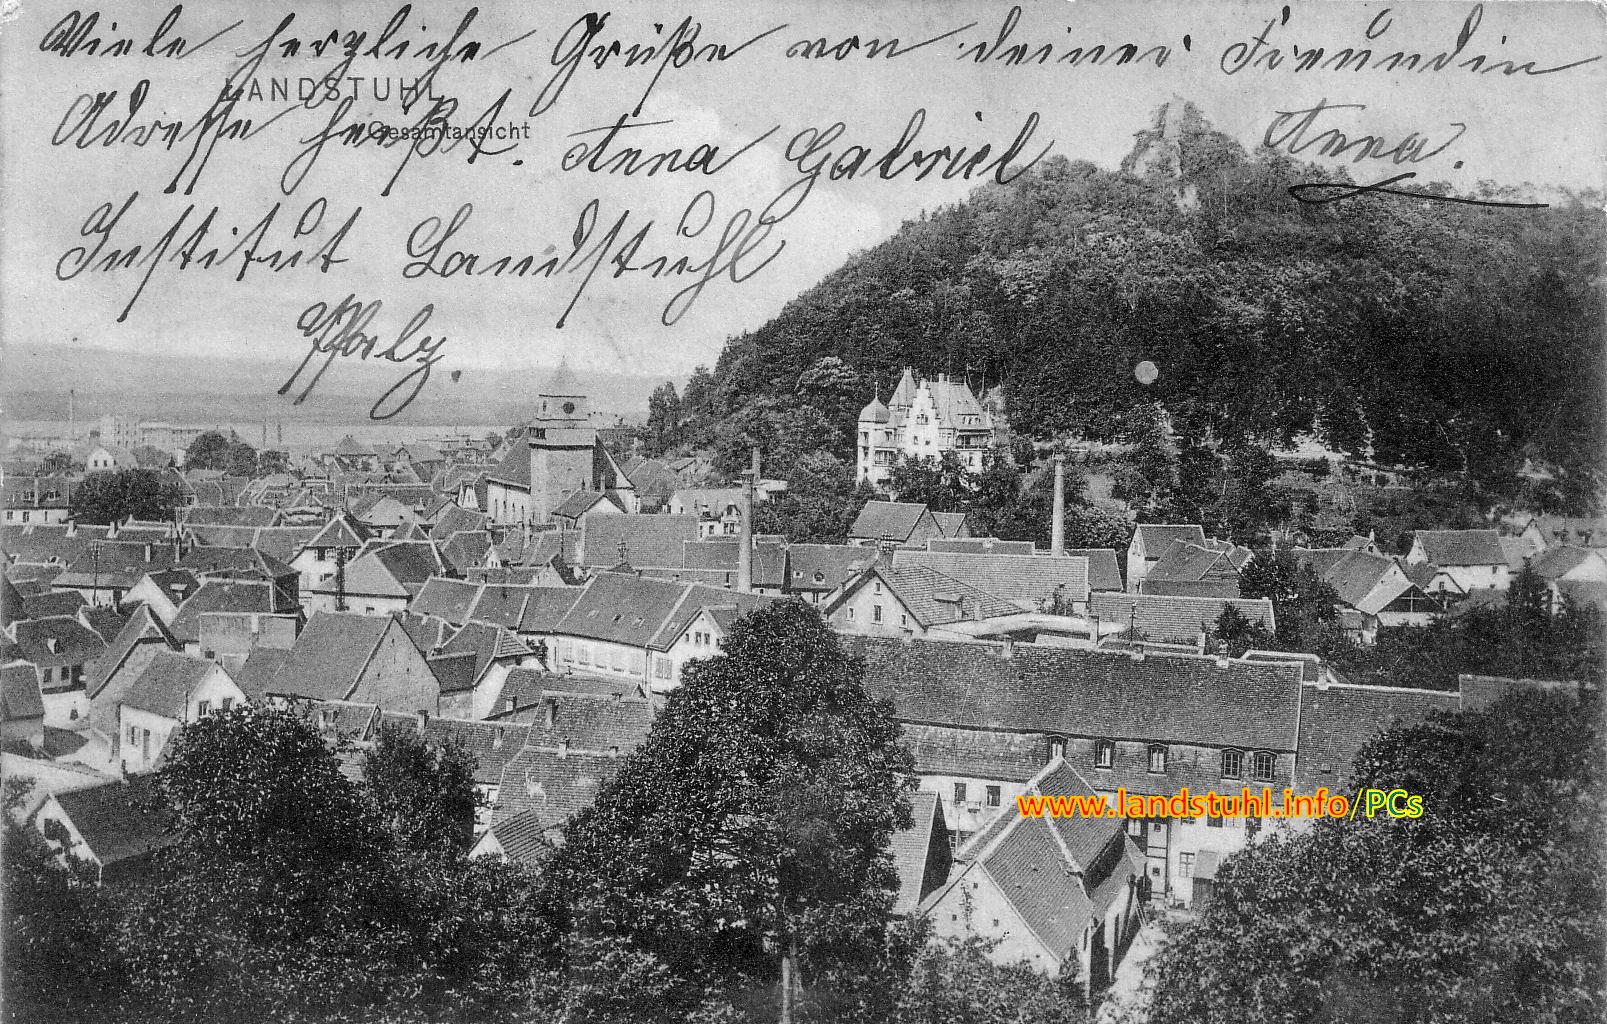 Viele herzliche Grüße von deiner Freundin
Anna.
LANDSTUHL
Gesamtansicht
Adresse heißt. Anna Gabriel
Institut Landstuhl
Pfalz.
www.landstuhl.info/PCs